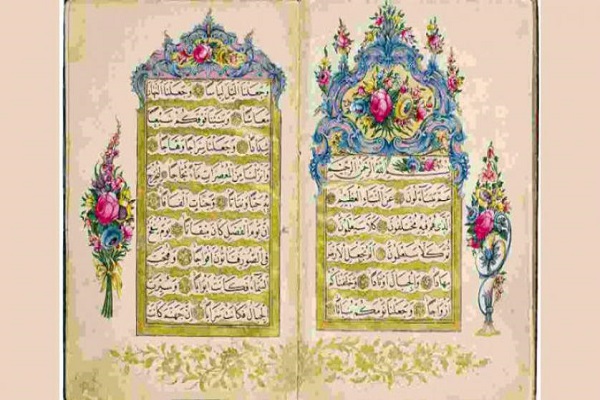 بسم الله الرحمن الرحيم
عَمَّ يَتَسَاءَلُونَ عَنِ النَّبَإِ الْعَظِيمِ
الَّذِي هُمْ فِيهِ مُخْتَلِفُونَ كَلَّا سَيَعْلَمُونَ
ثُمَّ كَلَّا سَيَعْلَمُونَ أَلَمْ نَجْعَلِ الْأَرْضَ
مِهَادًا وَالْجِبَالَ أَوْتَادًا وَخَلَقْنَاكُمْ
أَزْوَاجًا وَجَعَلْنَا نَوْمَكُمْ سُبَاتًا
وَجَعَلْنَا اللَّيْلَ لِبَاسًا وَجَعَلْنَا النَّهَارَ
مَعَاشًا وَبَنَيْنَا فَوْقَكُمْ سَبْعًا
شِدَادًا وَجَعَلْنَا سِرَاجًا وَهَّاجًا
وَأَنْزَلْنَا مِنَ الْمُعْصِرَاتِ مَاءً ثَجَّاجًا لِنُخْرِجَ
بِهِ حَبًّا وَنَبَاتًا وَجَنَّاتٍ أَلْفَافًا
إِنَّ يَوْمَ الْفَصْلِ كَانَ مِيقَاتًا يَوْمَ يُنْفَخُ
فِي الصُّورِ فَتَأْتُونَ أَفْوَاجًا وَفُتِحَتِ
السَّمَاءُ فَكَانَتْ أَبْوَابًا وَسُيِّرَتِ
الْجِبَالُ فَكَانَتْ سَرَابًا إِنَّ جَهَنَّمَ كَانَتْ